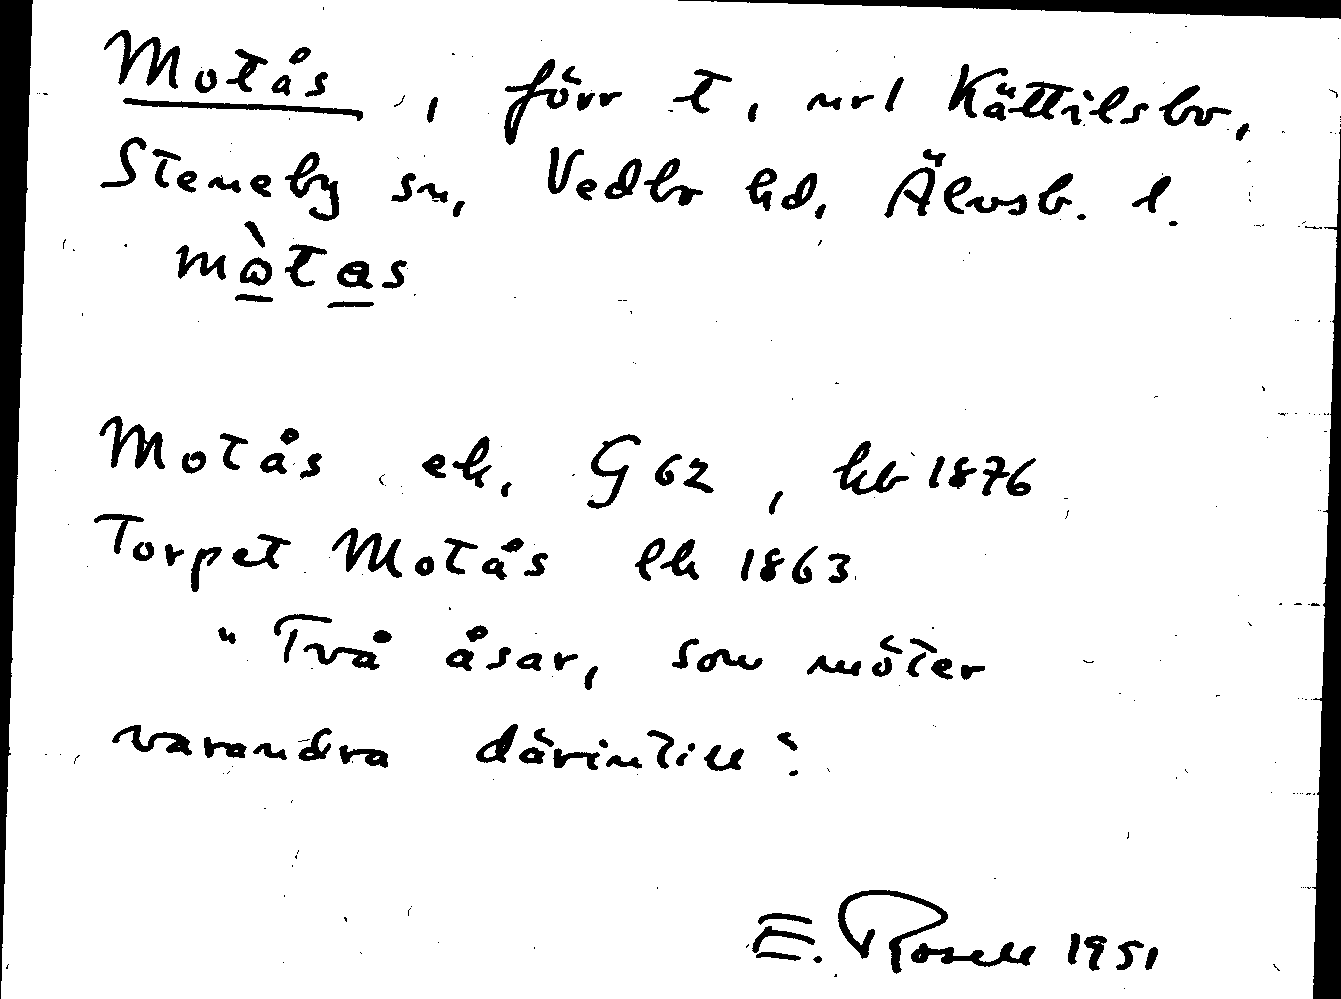 Motås, förr t, nr 1 Kättilsbo,
Steneby sn, Vedbo hd, Älvsb. l.
mòtas
Motås ek, G 62, kb 1876
Torpet Motås lh 1863
"Två åsar, som möter
varandra därintill".
E. Rosell 1951